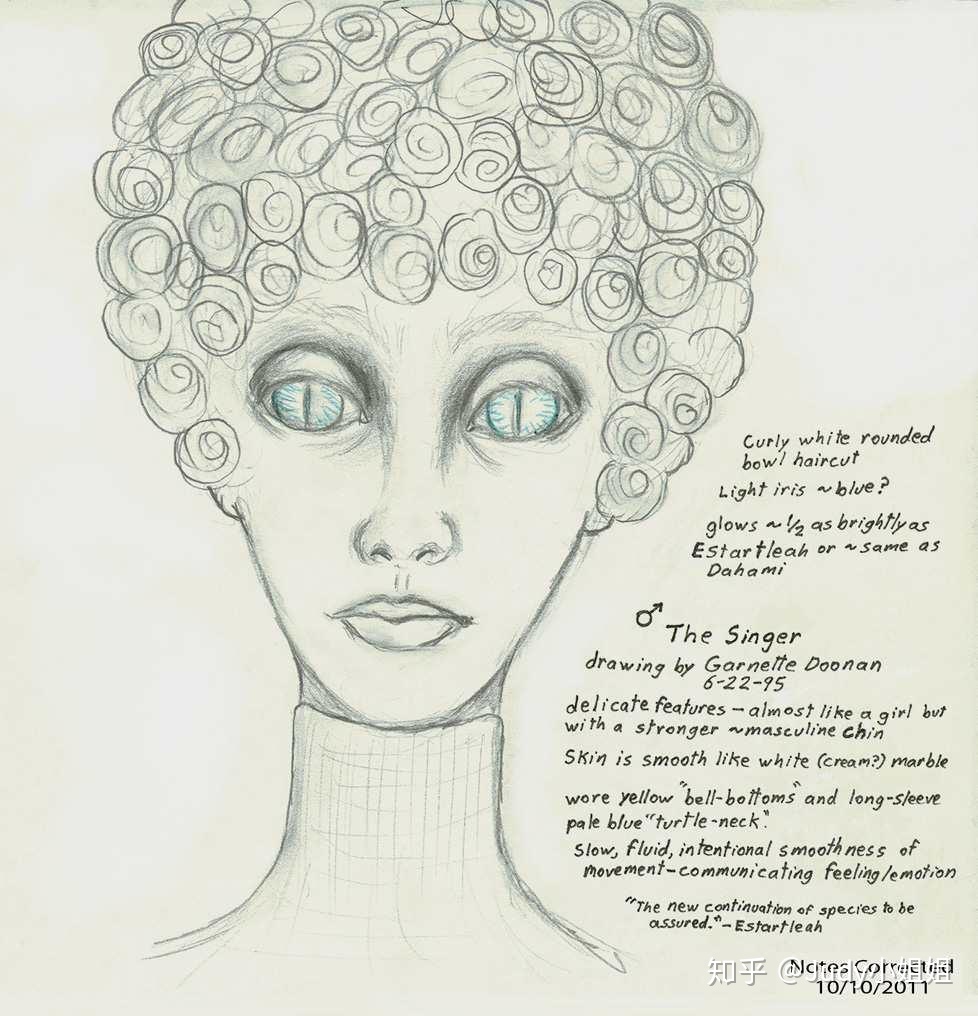 Curly white rounded
bowl haircut
Light iris ~blue?
glows ~ 1/2 as brightly as
Estartleah or ~same as
Dahami
♂ The Singer
drawing by Garnette Doonan
6-22-95
delicate features - almost like a girl but
with a stronger ~masculine chin
Skin is smooth like white (cream?) marble
wore yellow "bell-bottoms" and long-sleeve
pale blue "turtle-neck".
Slow, fluid, intentional smoothness of
movement - communicating feeling/emotion
"The new continuation of species to be
assured." - Estartleah
Notes Corrected
10/10/2011
知乎 @Judy小姐姐